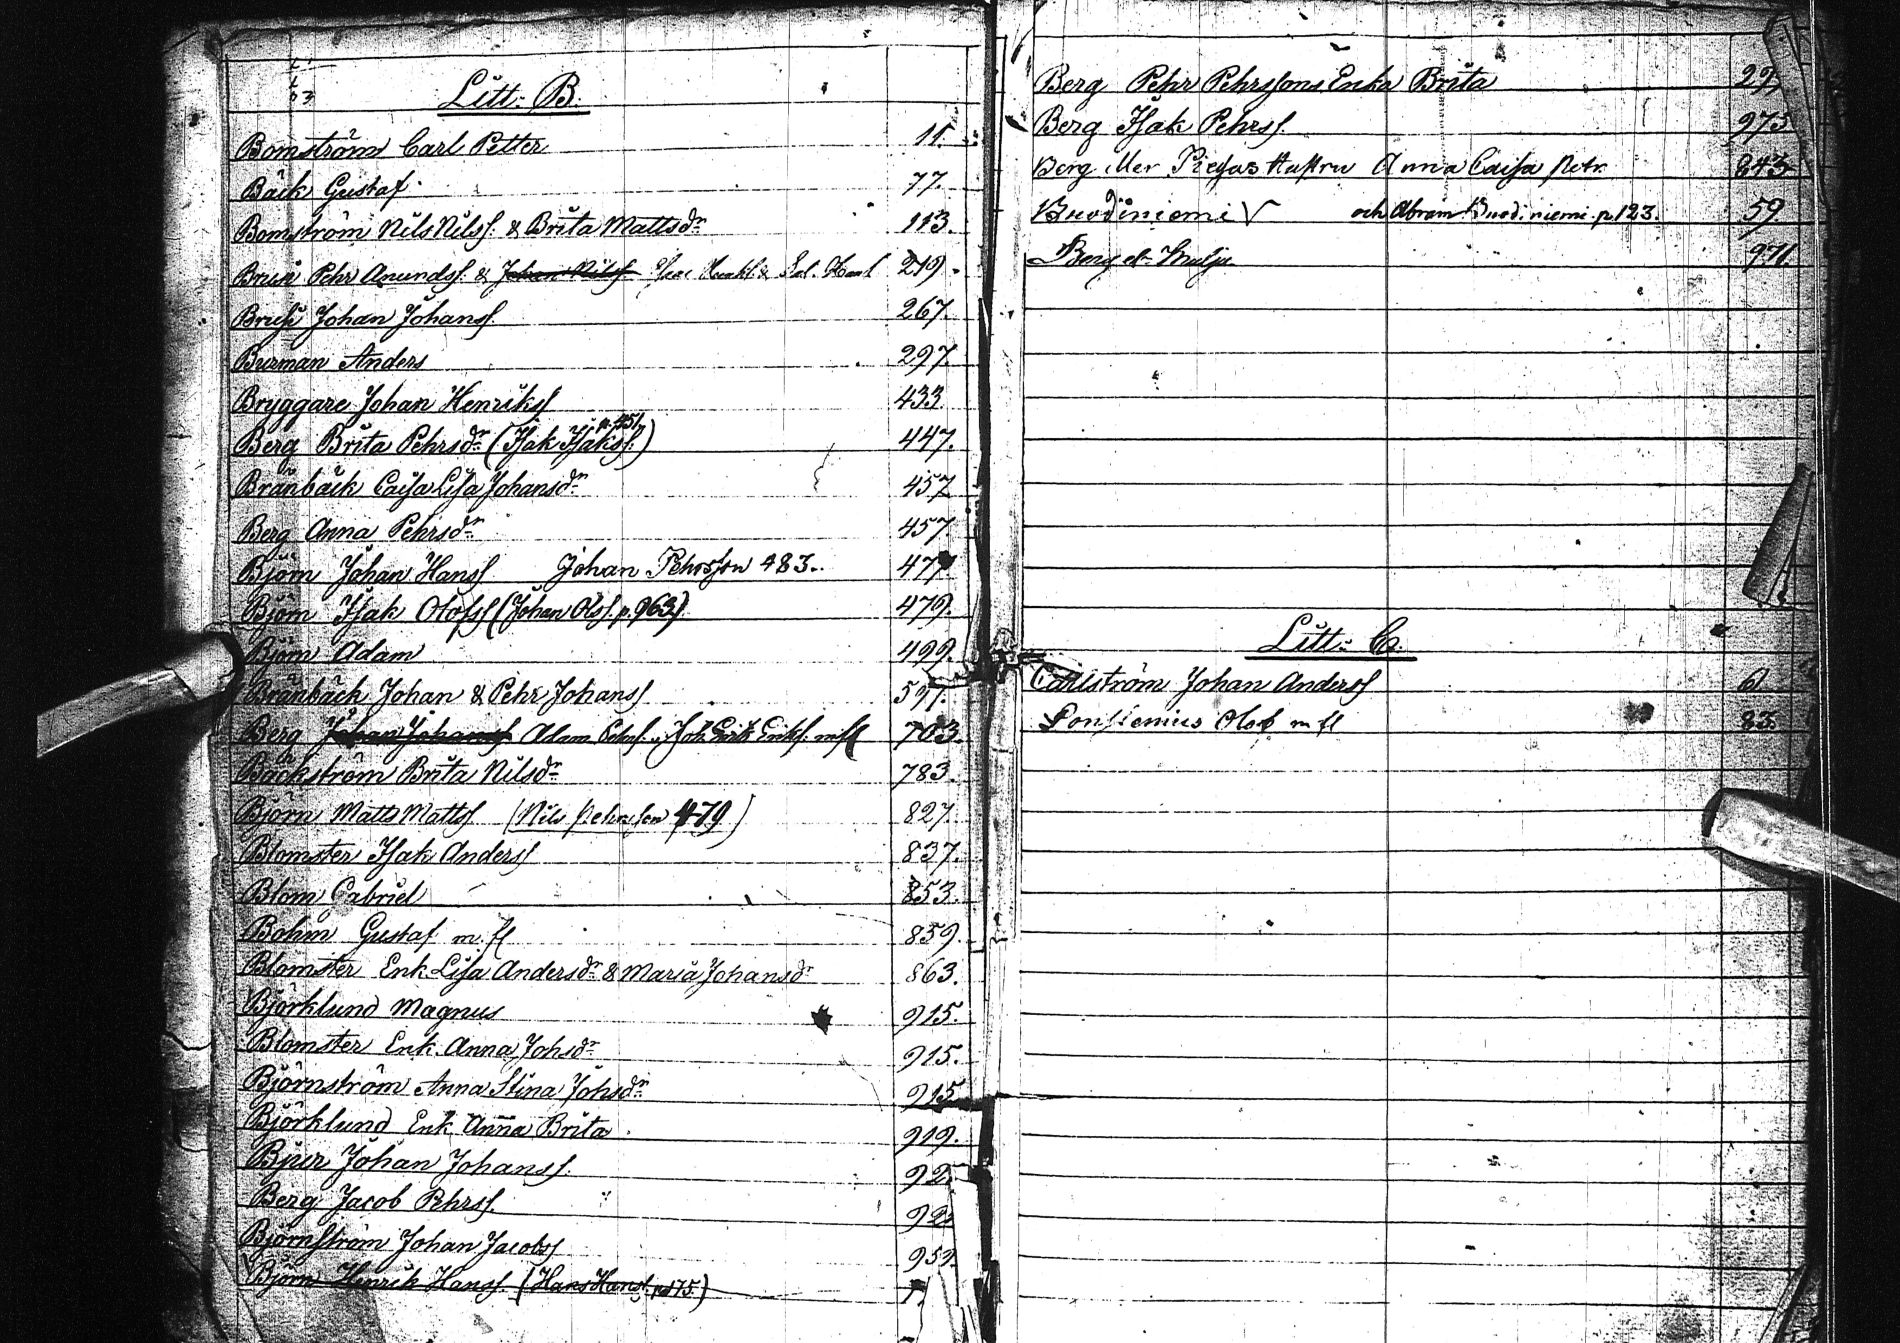 Litt. B.
Bomström Carl Petter 11.
Bäck Gustaf 77.
Bomström Nils Nilss. & Brita Mattsdr 113.
Brun Pehr Anundss. & Johan Nilss. 219.
Bruse Johan Johanss. 267.
Burman Anders 297.
Bryggare Johan Henrikss 433.
Berg Brita Pehrsdr (Isak Isakss. p. 451) 447.
Brånbäck Caisa Lisa Johansdr 457
Berg Anna Pehrsdr 457.
Björn Johan Hanss Johan Pehrsson 483. 477
Björn Isak Olofss (Johan Olss. p. 963) 479.
Björn Adam 499.
Brånbäck Johan & Pehr Johanss 597.
Berg Johan Johanss Adam Joh Erik Erikss. mfl 703.
Bäckström Brita Nilsdr 783.
Björn Matts Matts (Nils Pehrsson 479) 827.
Blomster Isak Anderss 837.
Blom Gabriel 853.
Bohm Gustaf m. fl 859.
Blomster Enk Lisa Andersdr & Maria Johansdr 863.
Björklund Magnus 915.
Blomster Enk. Anna Johsdr 915.
Björnström Anna Stina Johsdr 915
Björklund Enk Anna Brita 919.
Bjur Johan Johanss. 92
Berg Jacob Pehrss. 92
Björnström Johan Jacobss 959.
Björn Henrik Hanss. (Hans Hanss. p 175.)
Berg Pehr Pehrssons Enka Brita 29
Berg Isak Pehrss. 975
Berg Hustru Anna Caisa 843
Buodiniemi √ och Abram Buodiniemi p 123. 59
Berg 971.
Litt. C.
Carlström Johan Anderss 61
Consienius Olof m fl 83.